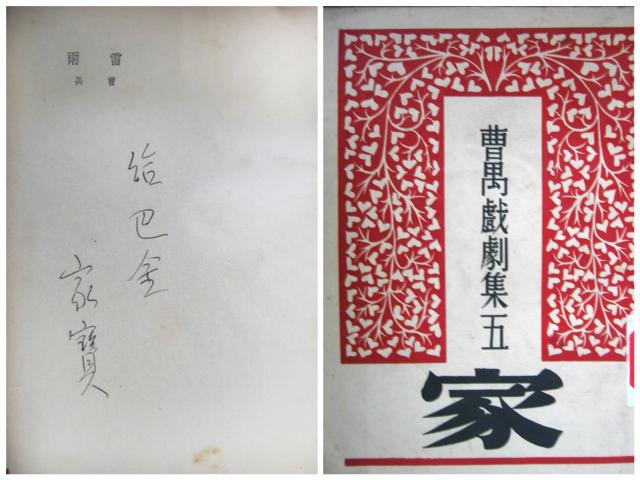 雷雨
曹禺
給巴金
家寶
曹禺戲劇集五
家